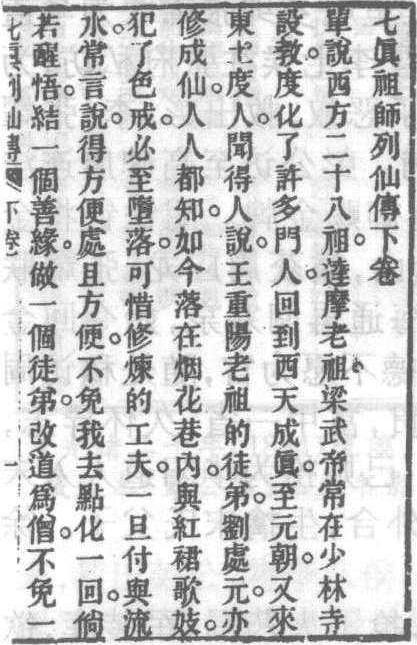 七眞祖師列仙傳下卷
單說西方二十八祖。達摩老祖。梁武帝常在少林寺
設教度化了許多門人回到西天成眞。至元朝。又來
東土度人聞得人說王重陽老祖的徒弟劉處元。亦
修成仙人人都知。如今落在烟花巷內。與紅裙歌妓。
犯了色戒。必至墮落。可惜修煉的工夫。一旦付與流
水。常言說。得方便處且方便。不免我去點化一回。倘
若醒悟。結一個善緣。做一個徒弟。改道爲僧。不免一
七眞列仙傳 下卷 一